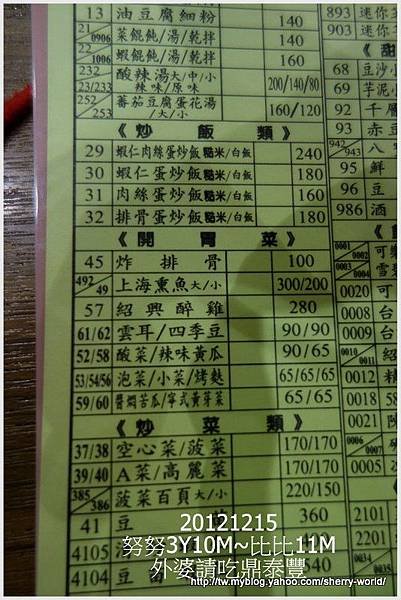 13 油豆腐細粉 140
21 0906 菜餛飩/湯/乾拌 140
22 1006 蝦餛飩/湯/乾拌 160
232 23/233 酸辣湯大/中/小 辣味/原味 200/140/80
252 253 蕃茄豆腐蛋花湯 大/小 160/120
《炒飯類》
29 蝦仁肉絲蛋炒飯糙米/白飯 240
30 蝦仁蛋炒飯糙米/白飯 180
31 肉絲蛋炒飯糙米/白飯 160
32 排骨蛋炒飯糙米/白飯 180
《開胃菜》
45 炸排骨 100
492 49 上海熏魚大/小 300/200
57 紹興醉雞 280
61/62 雲耳/四季豆 90/90
52/58 酸菜/辣味黃瓜 90/65
53/54/56 泡菜/小菜/烤麩 65/65/65
59/60 醬燜苦瓜/寧式黃芽菜 65/65
《炒菜類》
37/38 空心菜/菠菜 170/170
39/40 A菜/高麗菜 170/170
385 386 菠菜百頁大/小 220/150
41 豆 360
4105 豆
4104 豆
893 迷你
903 迷你
《甜
68 豆沙小
69 芋泥小
92 千層
93 赤豆
942 943 八
95 鮮
96 豆
986 酒
0001 0002 可
0003 0004 雪
0020 可
0008 台
0009 台
0010 0011 紹
0012 精
0018 58
0021 陳
0006 0007
0005
2101
2201
0034
20121215
努努3Y10M~比比11M
外婆請吃鼎泰豐
http://tw.myblog.yahoo.com/sherry-world/